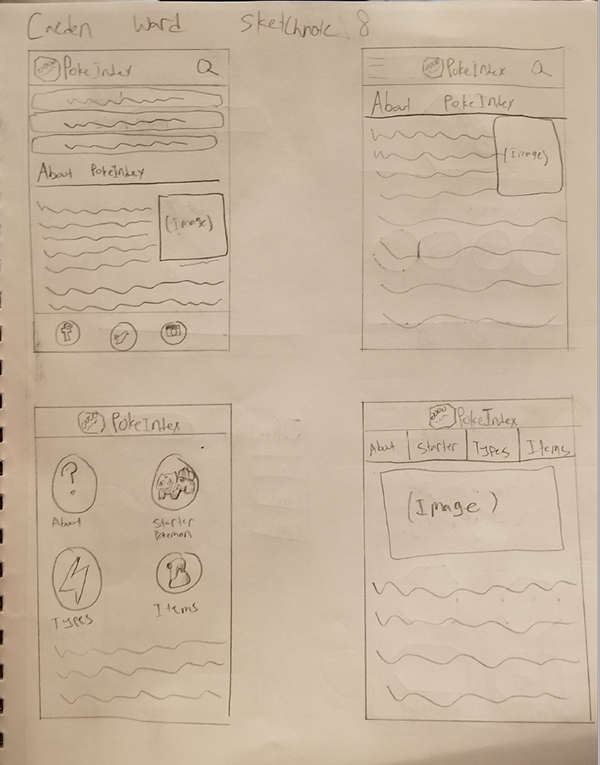 Caeden Ward Sketchnote 8
PokeIndex
About PokeIndex
(Image)
PokeIndex
About PokeIndex
(Image)
PokeIndex
?
About
Starter
Pokemon
Types
Items
PokeIndex
About Starter Types Items
(Image)